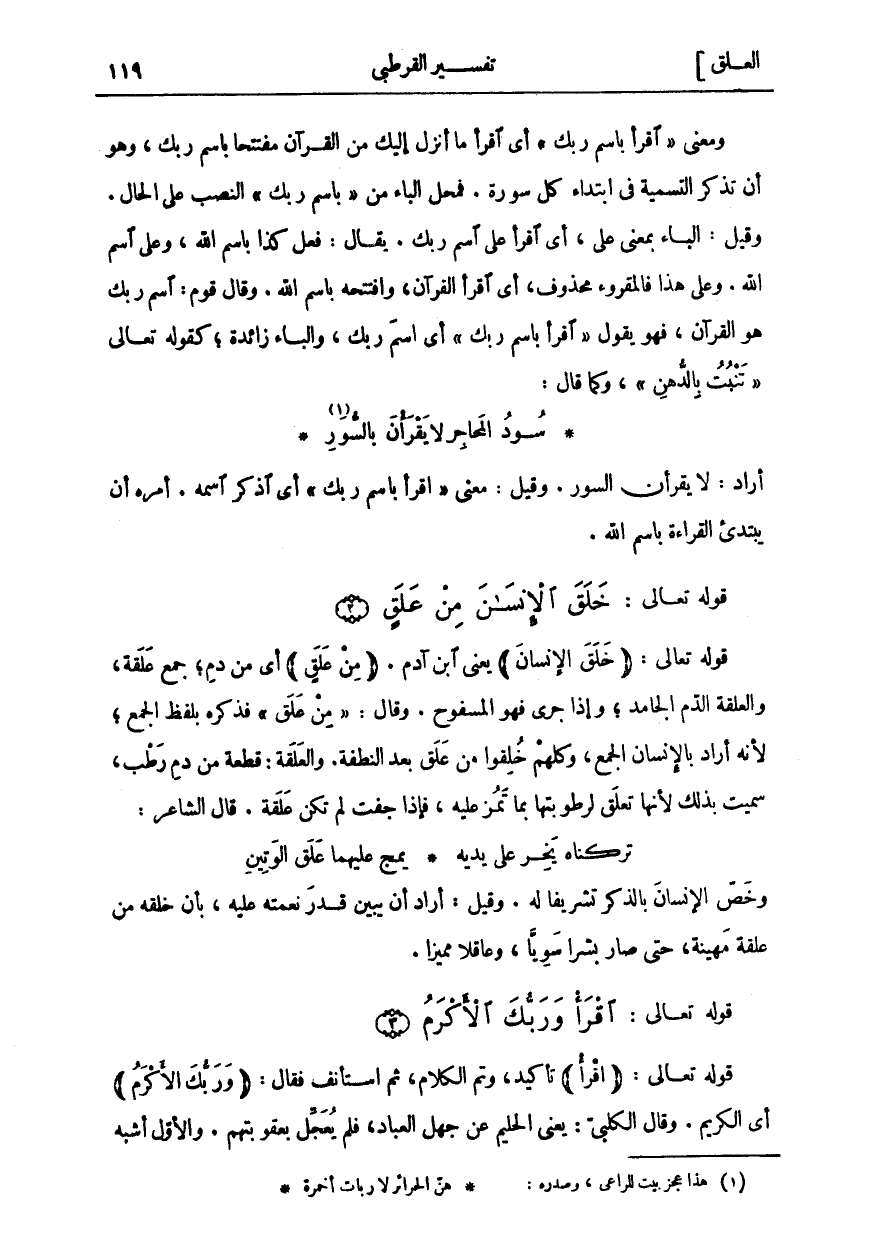 العـلق ] تفســـير القرطبى ١١٩
ومعنى « ٱقرأ باسم ربك » أى ٱقرأ ما أنزل إليك من القــرآن مفتتحا باسم ربك ، وهو
أن تذكر التسمية فى ابتداء كل سورة . فمحل الباء من « باسم ربك » النصب على الحال .
وقيل : البـاء بمعنى على ، أى ٱقرأ على ٱسم ربك . يقـال : فعل كذا باسم الله ، وعلى ٱسم
الله . وعلى هذا فالمقروء محذوف، أى ٱقرأ القرآن، وافتتحه باسم الله . وقال قوم: ٱسم ربك
هو القرآن ، فهو يقول « ٱقرأ باسم ربك » أى اسمَ ربك ، والبـاء زائدة ؛ كقوله تعـالى
« تَنْبُتُ بِالدُّهنِ » ، وكما قال :
* سُــودُ المَحاجِرِ لا يَقْرَأْنَ بالسُّوَرِ (١) *
أراد : لا يقرأن السور . وقيل : معنى « اقرأ باسم ربك » أى ٱذكر ٱسمه . أمره أن
يبتدئ القراءة باسم الله .
قوله تعـالى : خَلَقَ ٱلْإِنسَـٰنَ مِنْ عَلَقٍ ٢
قوله تعالى : ﴿ خَلَقَ الإنسانَ ﴾ يعنى ٱبن آدم . ﴿ مِنْ عَلَقٍ ﴾ أى من دم؛ جمع عَلَقة،
والعلقة الدّم الجامد ؛ وإذا جرى فهو المسفوح . وقال : « مِنْ عَلَق » فذكره بلفظ الجمع ؛
لأنه أراد بالإنسان الجمع، وكلهمْ خُلِقوا من عَلَق بعد النطفة. والعَلَقة: قطعة من دم رَطْب،
سميت بذلك لأنها تعلَق لرطوبتها بما تَمُرّ عليه ، فإذا جفت لم تكن عَلَقة . قال الشاعر :
تركـناه يَخِــر على يديه * يمج عليهما عَلَق الوَتِينِ
وخَصّ الإنسانَ بالذكر تشريفا له . وقيل : أراد أن يبين قــدرَ نعمته عليه ، بأن خلقه من
علقة مَهينة، حتى صار بشرا سَوِيًّا ، وعاقلا مميزا .
قوله تعـالى : ٱقْرَأْ وَرَبُّكَ ٱلْأَكْرَمُ ٣
قوله تعـالى : ﴿ اقْرأْ ﴾ تأكيد، وتم الكلام، ثم استأنف فقال : ﴿ وَرَبُّكَ الأَكْرَمُ ﴾
أى الكريم . وقال الكلبىّ : يعنى الحليم عن جهل العباد، فلم يُعَجِّل بعقوبتهم . والأوّل أشبه
(١) هذا عجز بيت للراعى ، وصدره : * هنّ الحرائر لا ربات أخمرة *